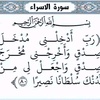 سورة الاسراء
بسم الله الرحمن الرحيم
رَبِّ أَدْخِلْنِي
صِدْقٍ وَأَخْرِجْنِي مُخْرَجَ
صِدْقٍ وَاجْعَل لِّي مِن
لَّدُنكَ سُلْطَانًا نَّصِيرًا